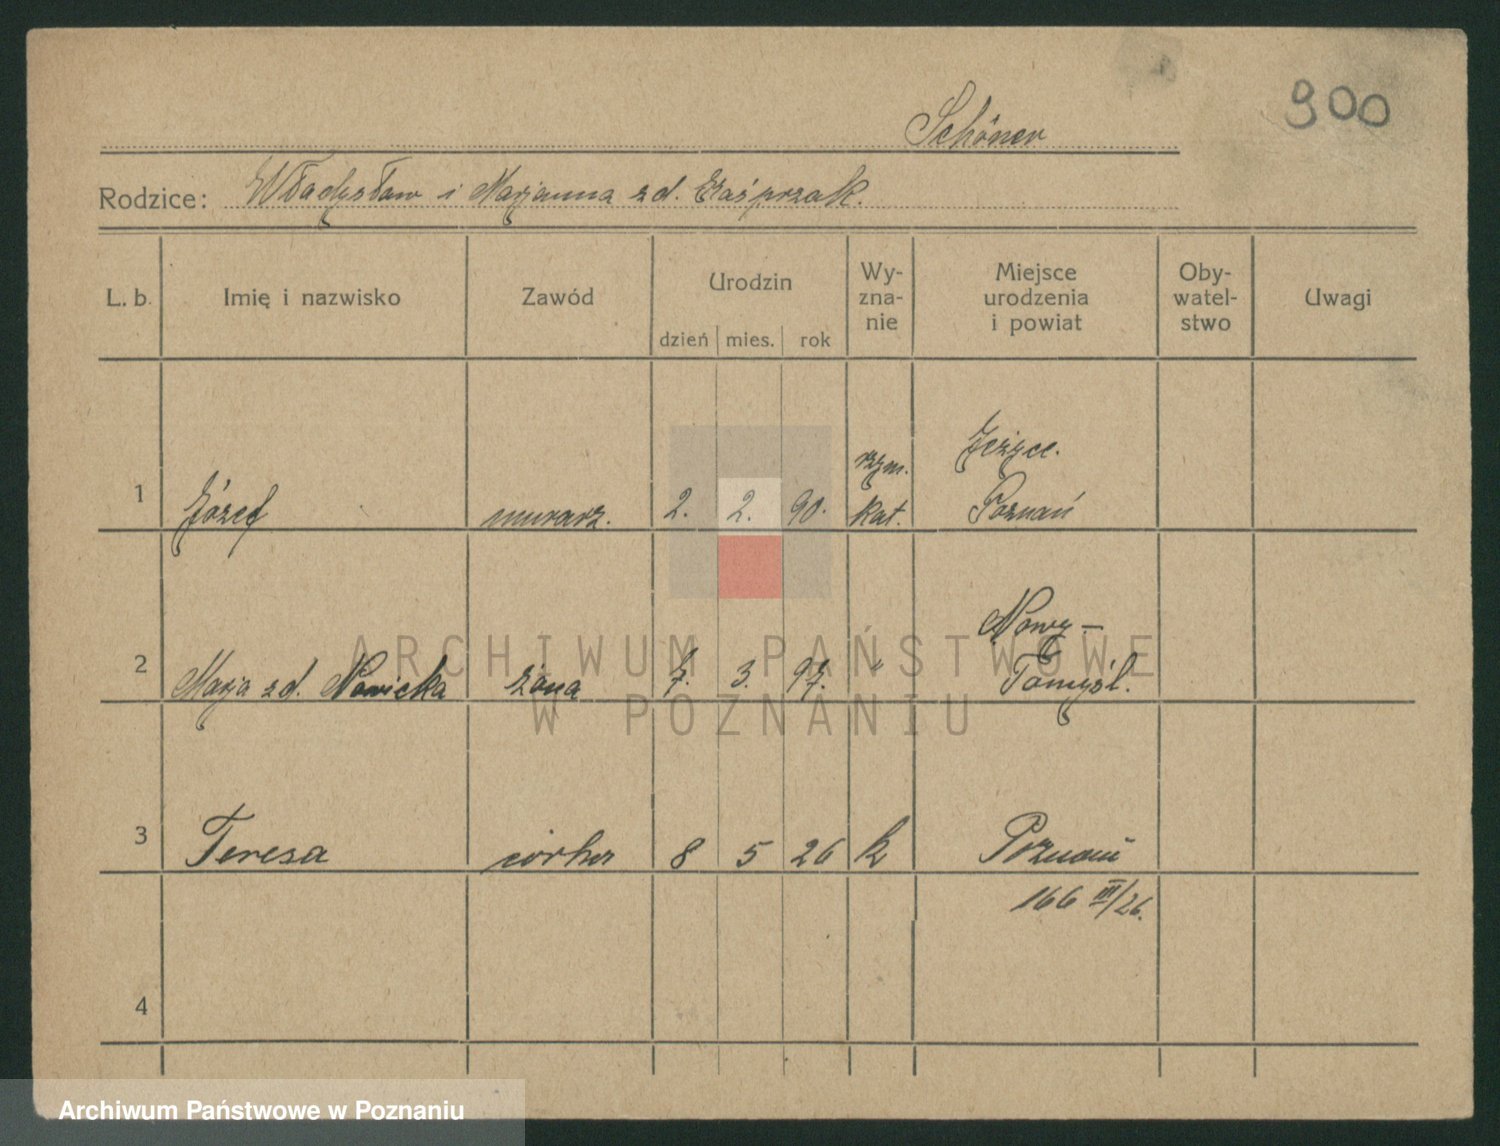 900
Schöner
Rodzice: Władysław i Marjanna z d. Kasprzak.
L. b. Imię i nazwisko Zawód Urodzin Wy- Miejsce Oby- Uwagi
zna- urodzenia watel-
nie i powiat stwo
dzień mies. rok
rzym. Jeżyce.
1 Józef murarz. 2. 2. 90. kat. Poznań
Nowy-
2 Marja z d. Nowicka żona 7. 3. 97. " Tomyśl.
3 Teresa córka 8 5 26 k Poznań
166 III/26.
4
ARCHIWUM PAŃSTWOWE
W POZNANIU
Archiwum Państwowe w Poznaniu